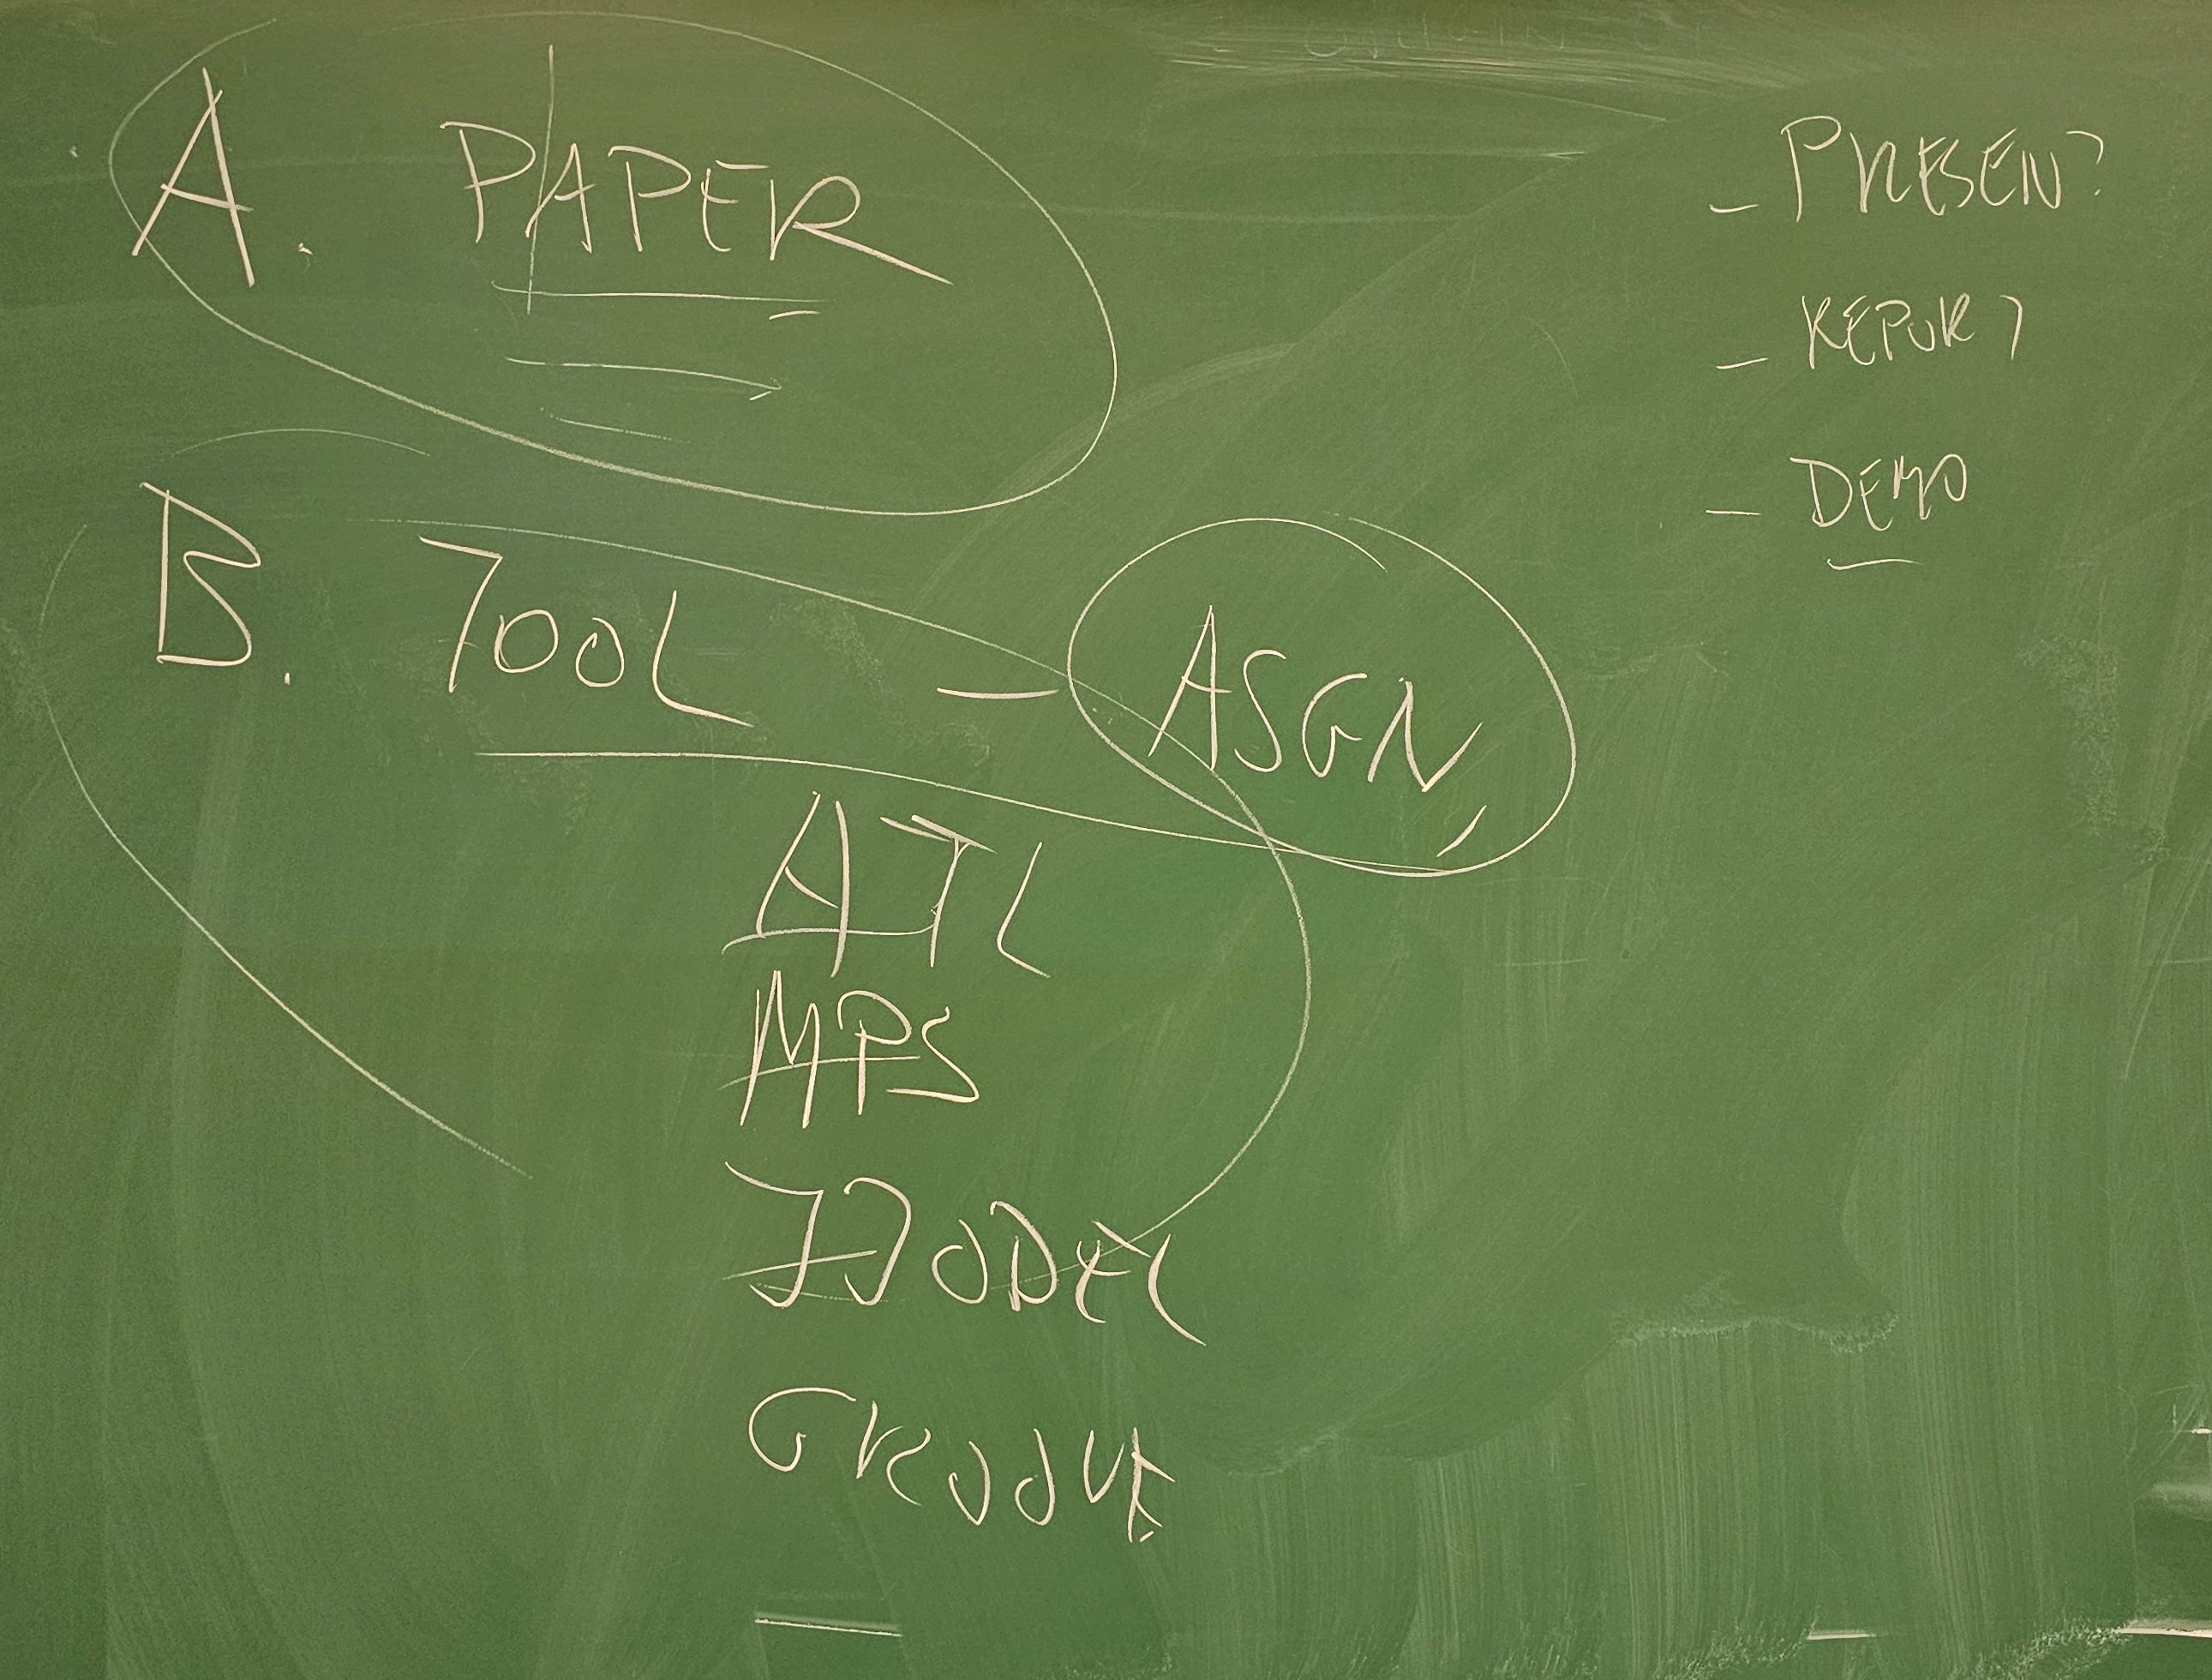 A. PAPER
B. TOOL - ASGN,
ATL
MPS
GROOVE
- PRESENT
- REPORT
- DEMO